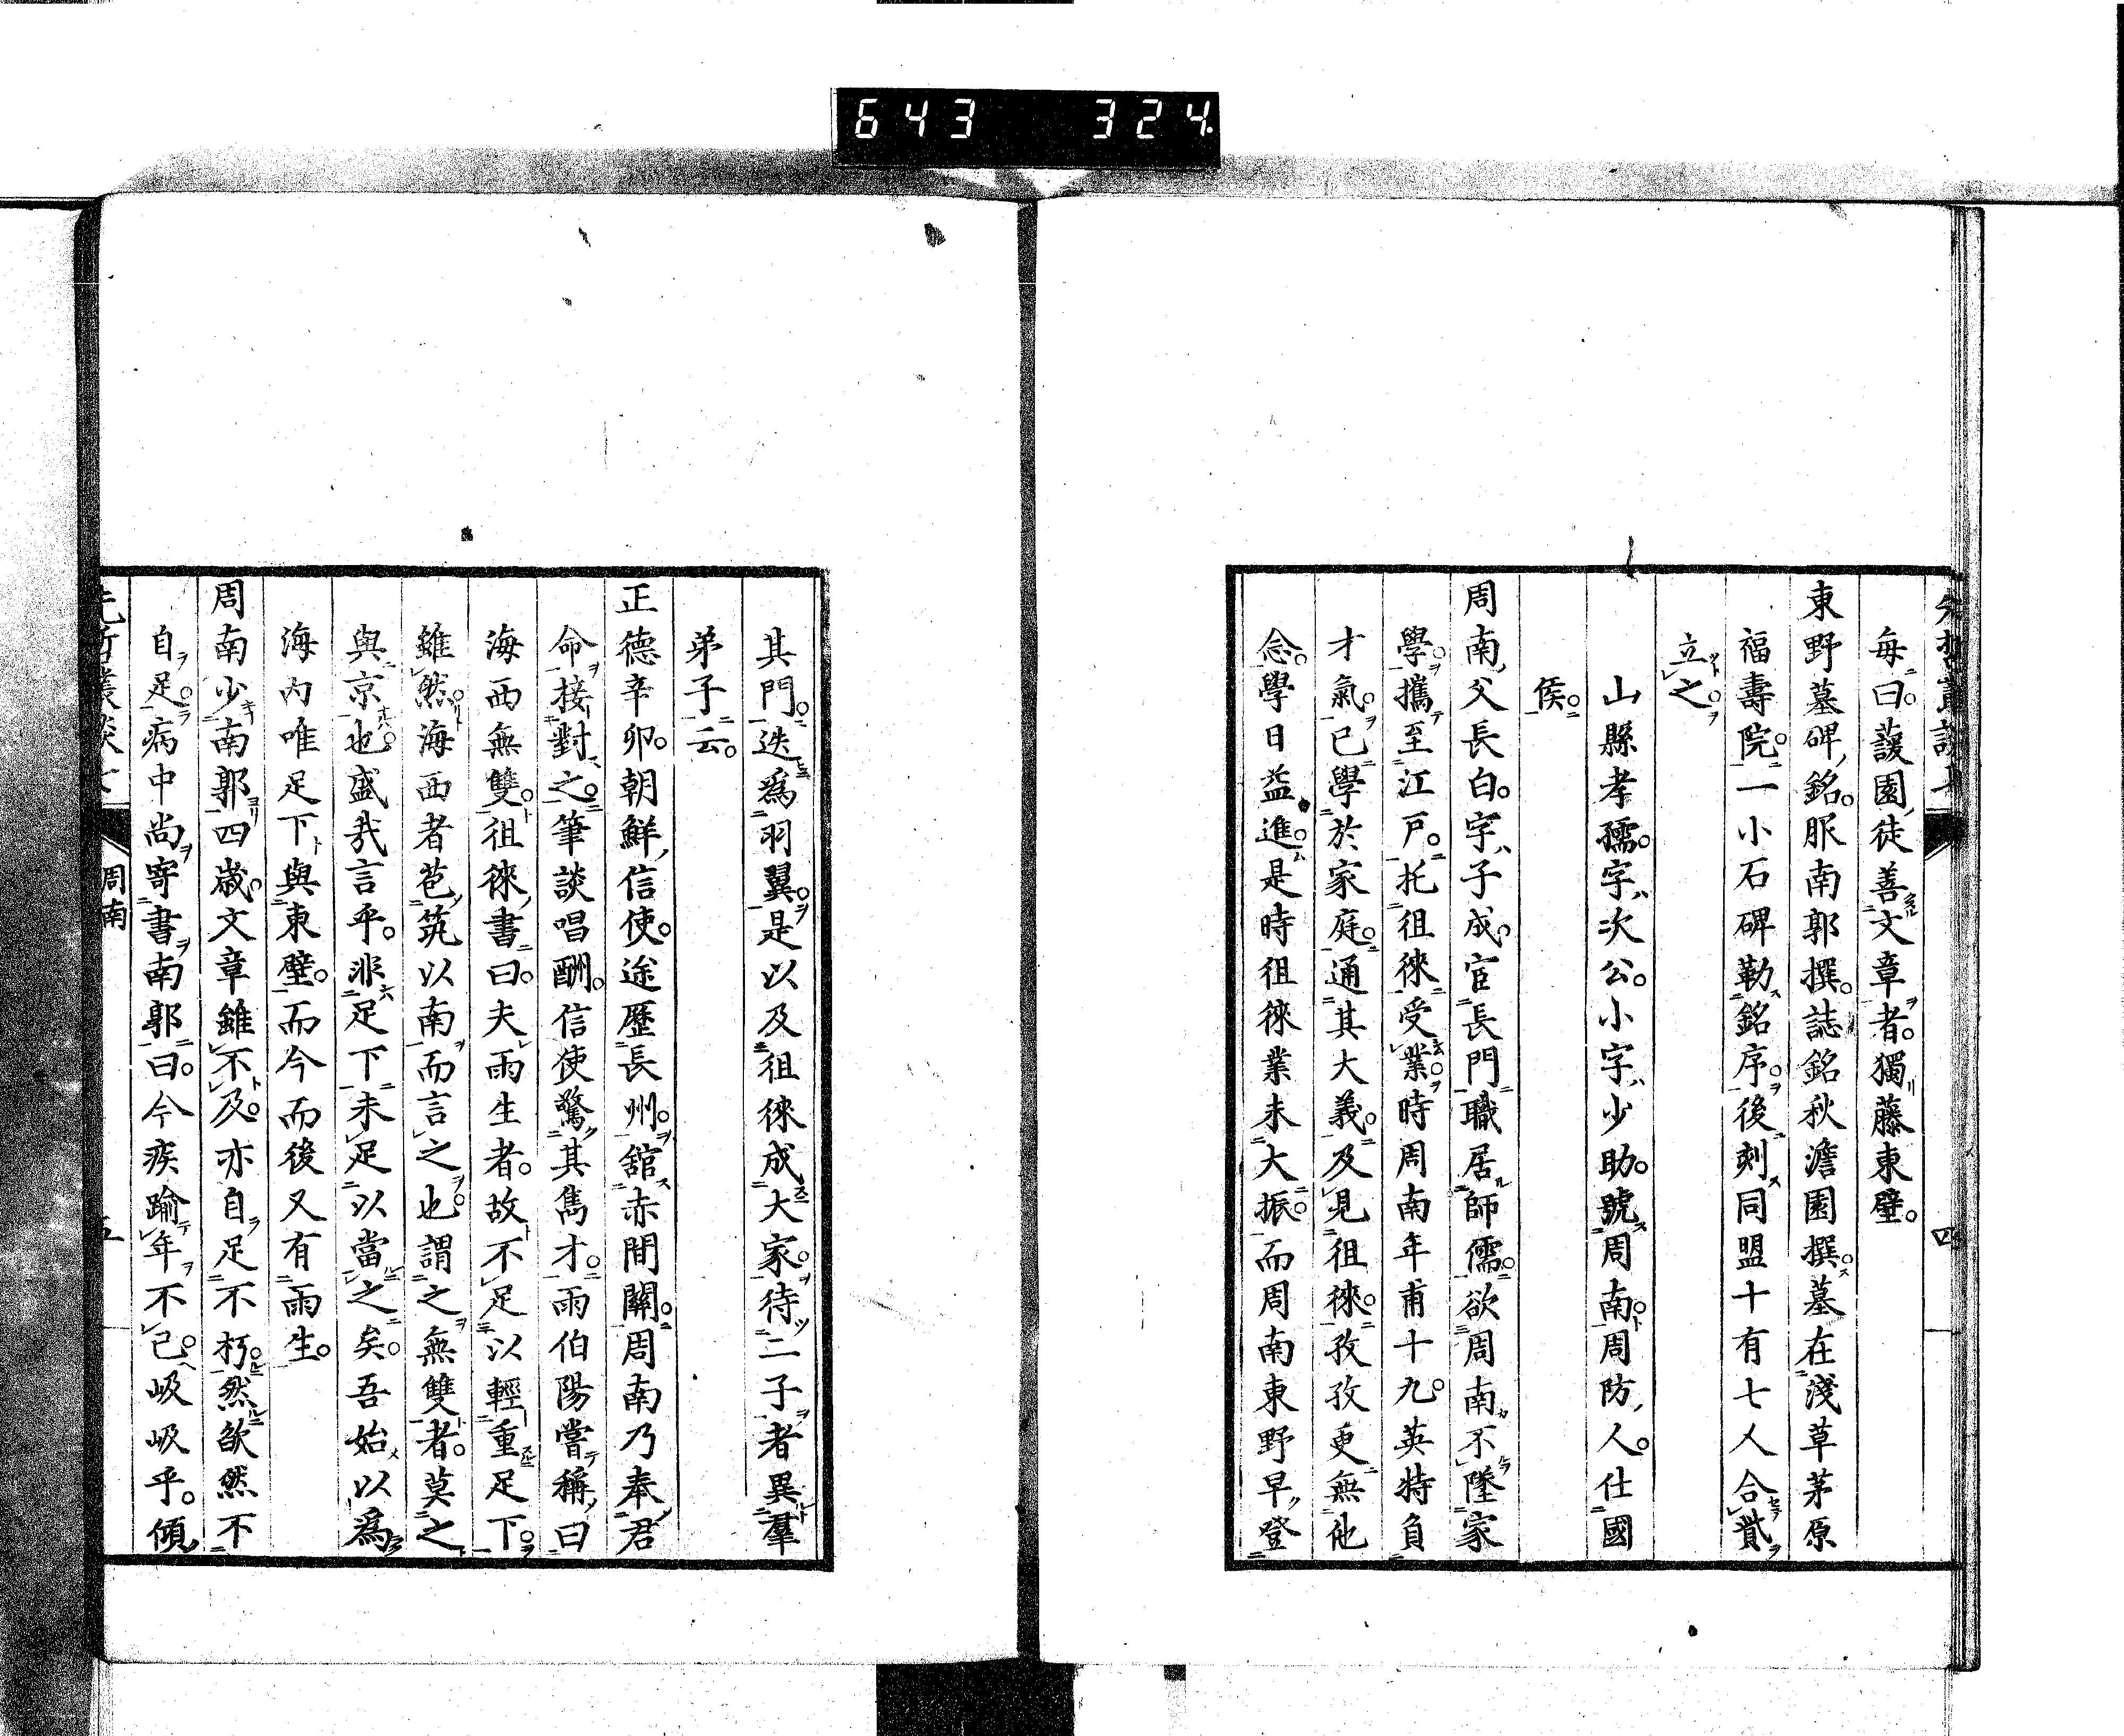 643 324.
毎曰。蘐園徒善文章者。獨藤東壁。
東野墓碑銘。服南郭撰。誌銘秋澹園撰。墓在淺草茅原
福壽院。一小石碑勒銘序。後刻同盟十有七人合貲
立之。
山縣孝孺。字次公。小字少助。號周南。周防人。仕國
侯。
周南父長白。字子成。宦長門職居師儒。欲周南不墜家
學。攜至江戸。托徂徠受業。時周南年甫十九。英特負
才氣。已學於家庭。通其大義。及見徂徠。孜孜更無他
念。學日益進。是時徂徠業未大振。而周南東野早登
四
其門。迭爲羽翼。是以及徂徠成大家。待二子者異羣
弟子云。
正德辛卯。朝鮮信使。途歷長州。舘赤間關。周南乃奉君
命接對之。筆談唱酬。信使驚其雋才。雨伯陽嘗稱曰
海西無雙。徂徠書曰。夫雨生者。故不足以輕重足下。
雖然海西者苞筑以南而言之也。謂之無雙者。莫之
與京也。盛哉言乎。非足下未足以當之矣。吾始以爲
海内唯足下與東壁。而今而後又有雨生。
周南少南郭四歳。文章雖不及。亦自足不朽。然欿然不
自足。病中尚寄書南郭曰。今疾踰年不已。岌岌乎。傾
周南
五